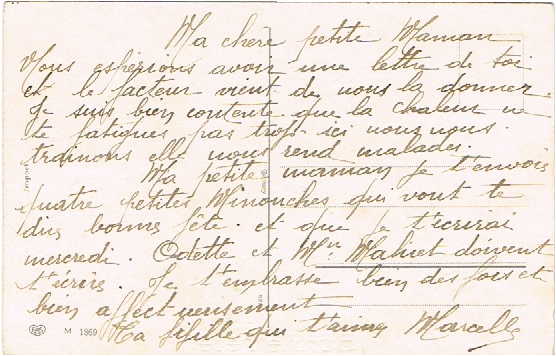 Ma chere petite Maman
Nous esperions avoir une lettre de toi
et le facteur vient de nous la donner.
Je suis bien contente que la chaleur ne
te fatigues pas trop. ici nous nous
trainons elle nous rend malades.
Ma petite maman je t'envois
quatre petites Minouches qui vont te
dire bonne fête. et que je t'ecrirai
mercredi. Odette et Mme doivent
t'écrire. Je t'embrasse bien des fois et
bien affectueusement
Ta fifille qui t'aime Marcelle
M 1869